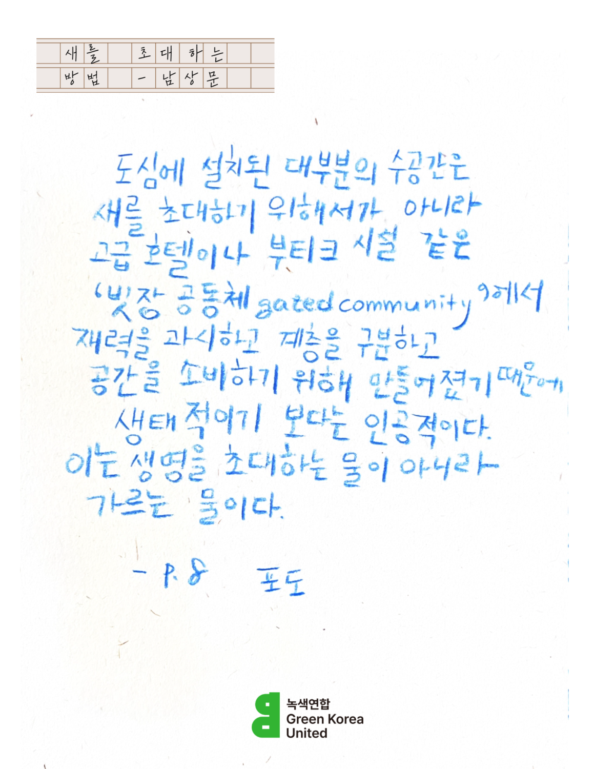 새를 초대하는
방법 - 남상문
도심에 설치된 대부분의 수공간은
새를 초대하기 위해서가 아니라
고급 호텔이나 부티크 시설 같은
'빗장 공동체 gated community'에서
재력을 과시하고 계층을 구분하고
공간을 소비하기 위해 만들어졌기 때문에
생태적이기 보다는 인공적이다.
이는 생명을 초대하는 물이 아니라
가르는 물이다.
- p.8 포도
녹색연합
Green Korea
United